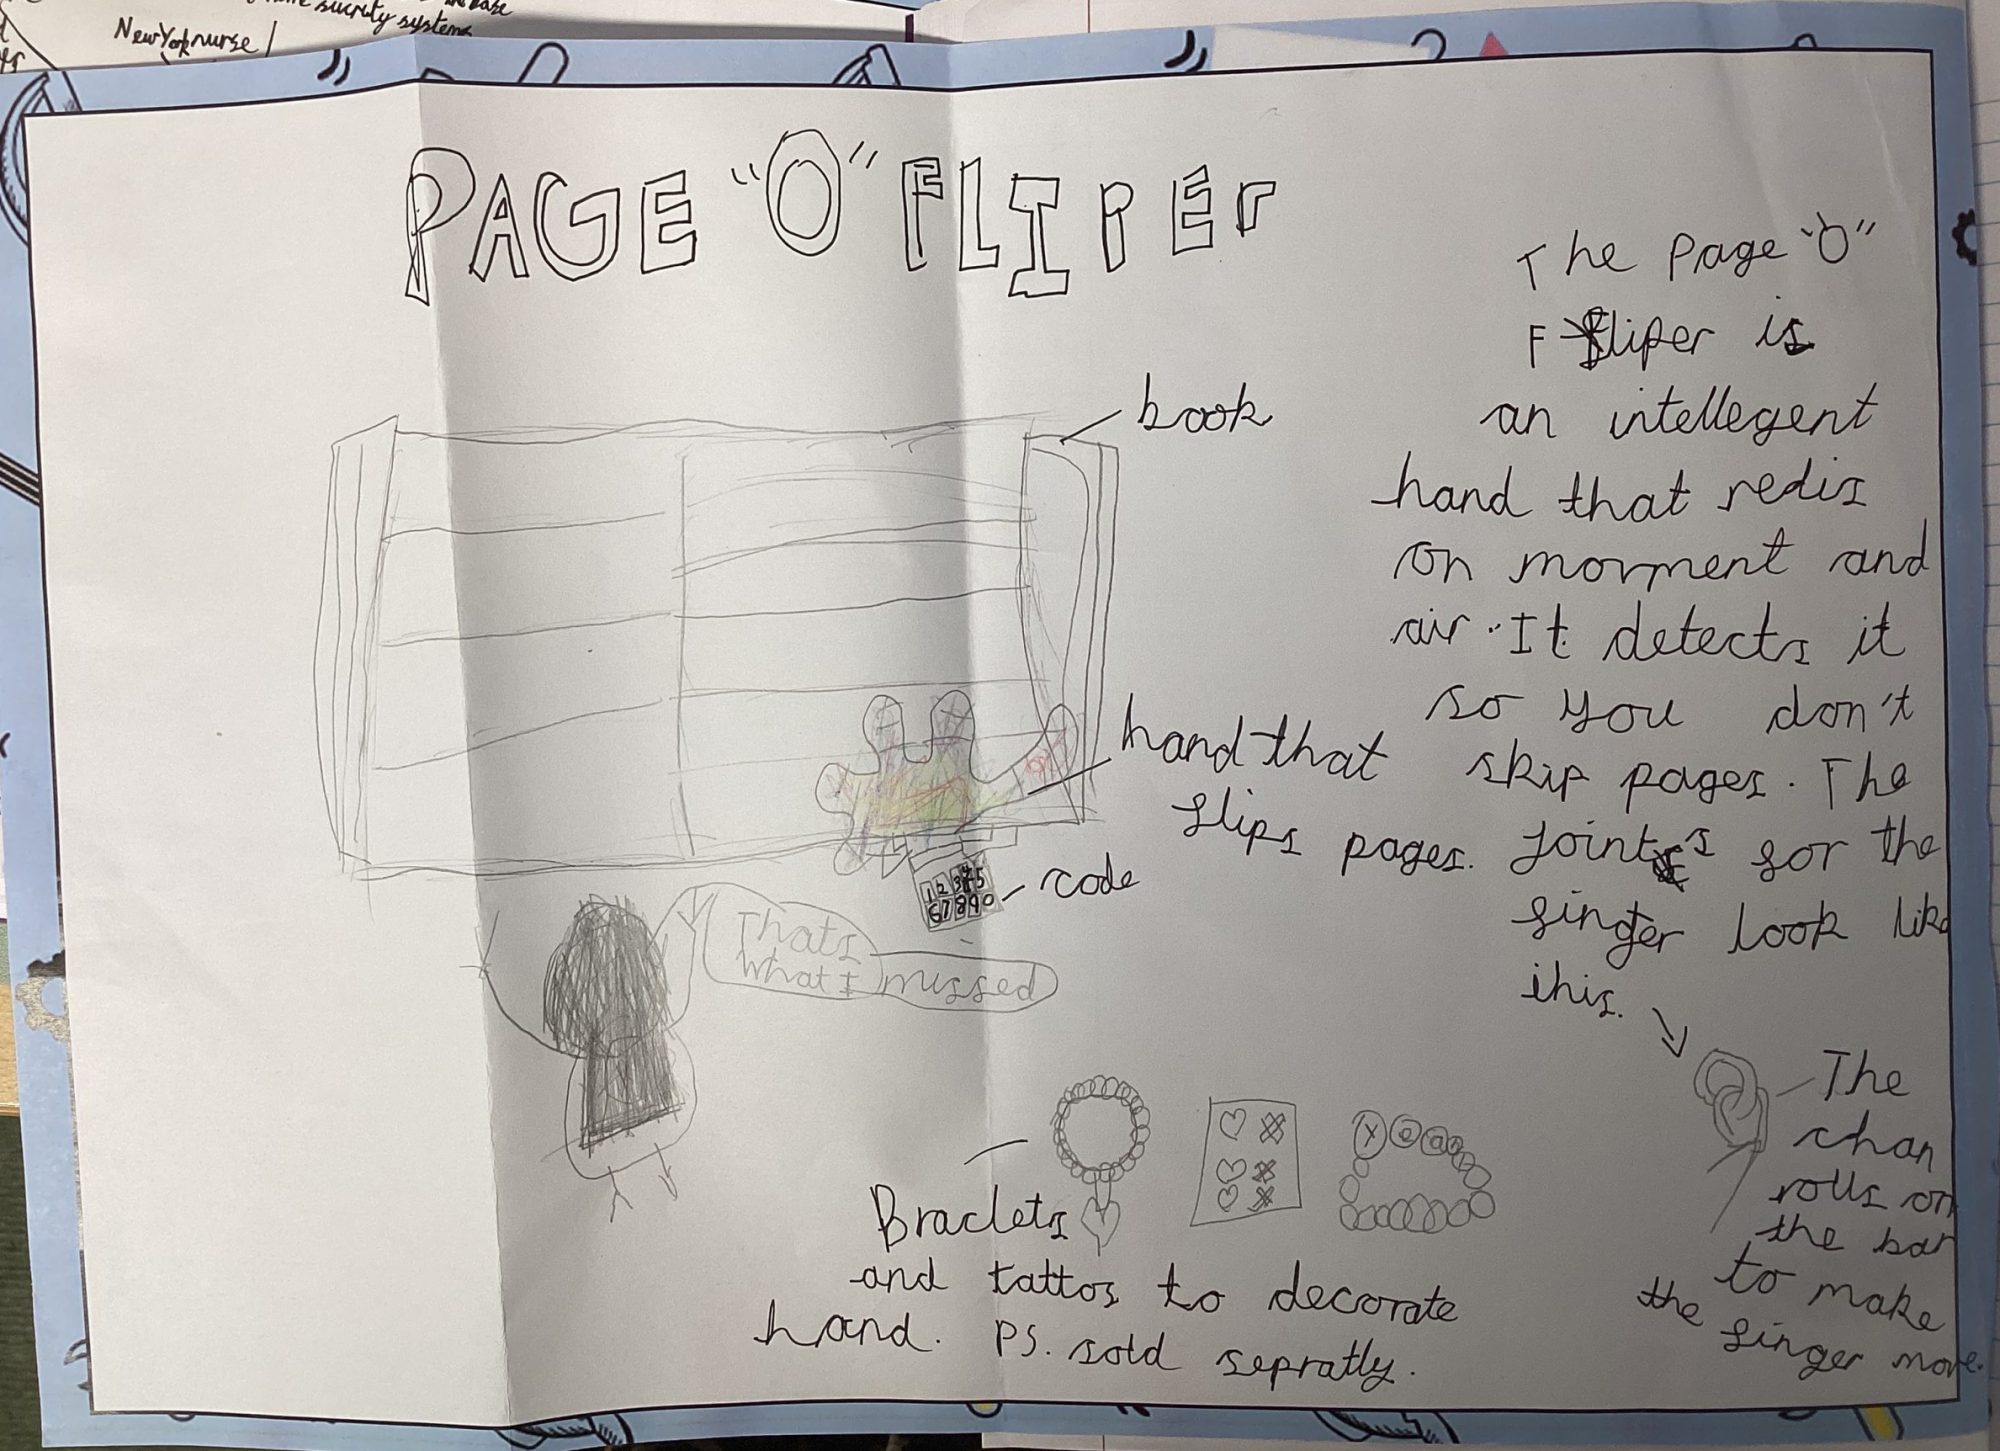 sucrity systems
New York nurse
PAGE "O" FLIPEr
The Page "O"
Fliper is
an intellegent
hand that redis
on movment and
air. It detects it
so you don't
skip pages. The
joint's for the
finger look like
this.
book
hand that
flips pages.
code
1 2 3 4 5
6 7 8 9 0
Thats
what I missed
The
chan
rolls on
the bar
to make
the finger move.
Yeah
Braclets
and tattos to decorate
hand. PS. sold sepratly.